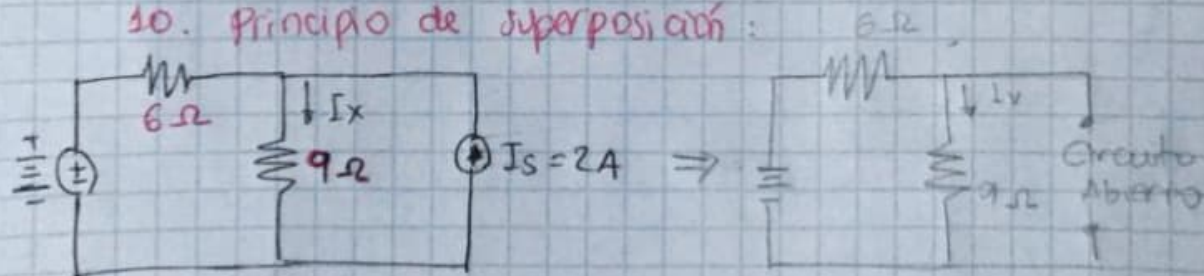 10. Principio de superposición:
6 Ω
Ix
9 Ω
Is = 2A
⇒
6 Ω
9 Ω
Circuito
Abierto